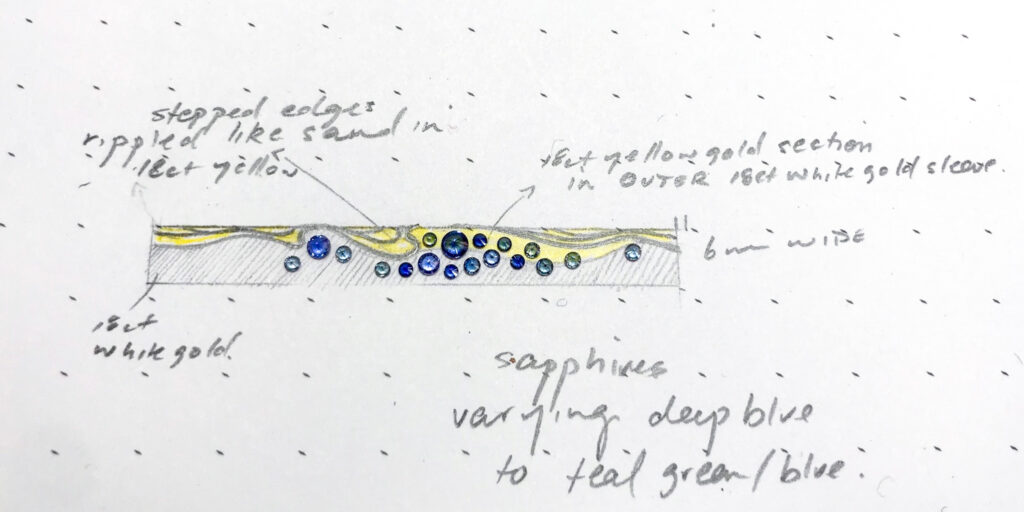 stepped edges
rippled like sand in
18ct yellow
18ct yellow gold section
in OUTER 18ct white gold sleeve.
6mm WIDE
18ct
white gold.
sapphires
varying deep blue
to teal green/blue.